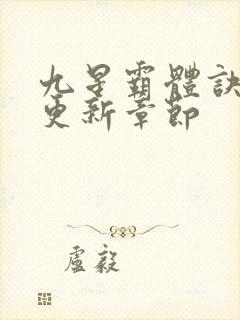 九星霸體訣
更新章節
盧毅